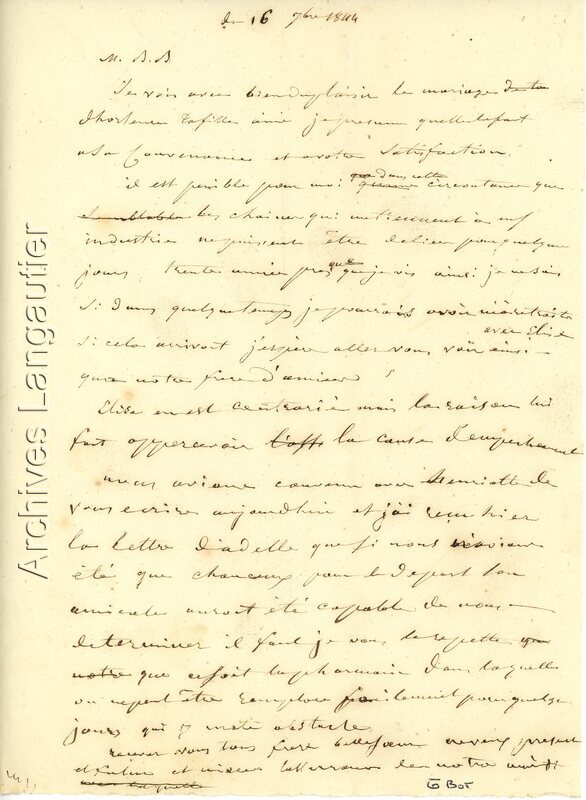 du 16 7bre 1844
M. B. B
Je vois avec bien du plaisir le mariage de ta
d'hortence ta fille ainé je presume quelle le fait
a sa Convenance et a votre Satisfaction.
il est penible pour moi que dans cette circonstance que
semblable les chaines qui me tiennent a mf
industrie ne puissent être deliée pour quelque
jours trente année presque que je vis ainsi je ne sais
si dans quelque temps je pourrais avoir
avec Elise
si cela arrivoit j'espère aller vous voir ainsi
que notre frere d'amiens
Elise en est contrarié mais la raison lui
fait appercevoir la cause d'empechement
nous avions convenu avec henriette de
vous ecrire aujourdhui et j'ai reçu hier
la lettre d'adelle que si nous n'avions
été que chanceux pour le depart Son
amicale auroit été capable de nous
determiner il faut je vous le repette que
notre que ce soit la pharmacie dans laquelle
on ne peut être remplacé facilement pour quelque
jours qui y mete obstacle
recevez vous tous frere belle soeur neveux present
et future et nieces l'assurance de notre amitié
avec laquelle
E Bor
Archives Langautier